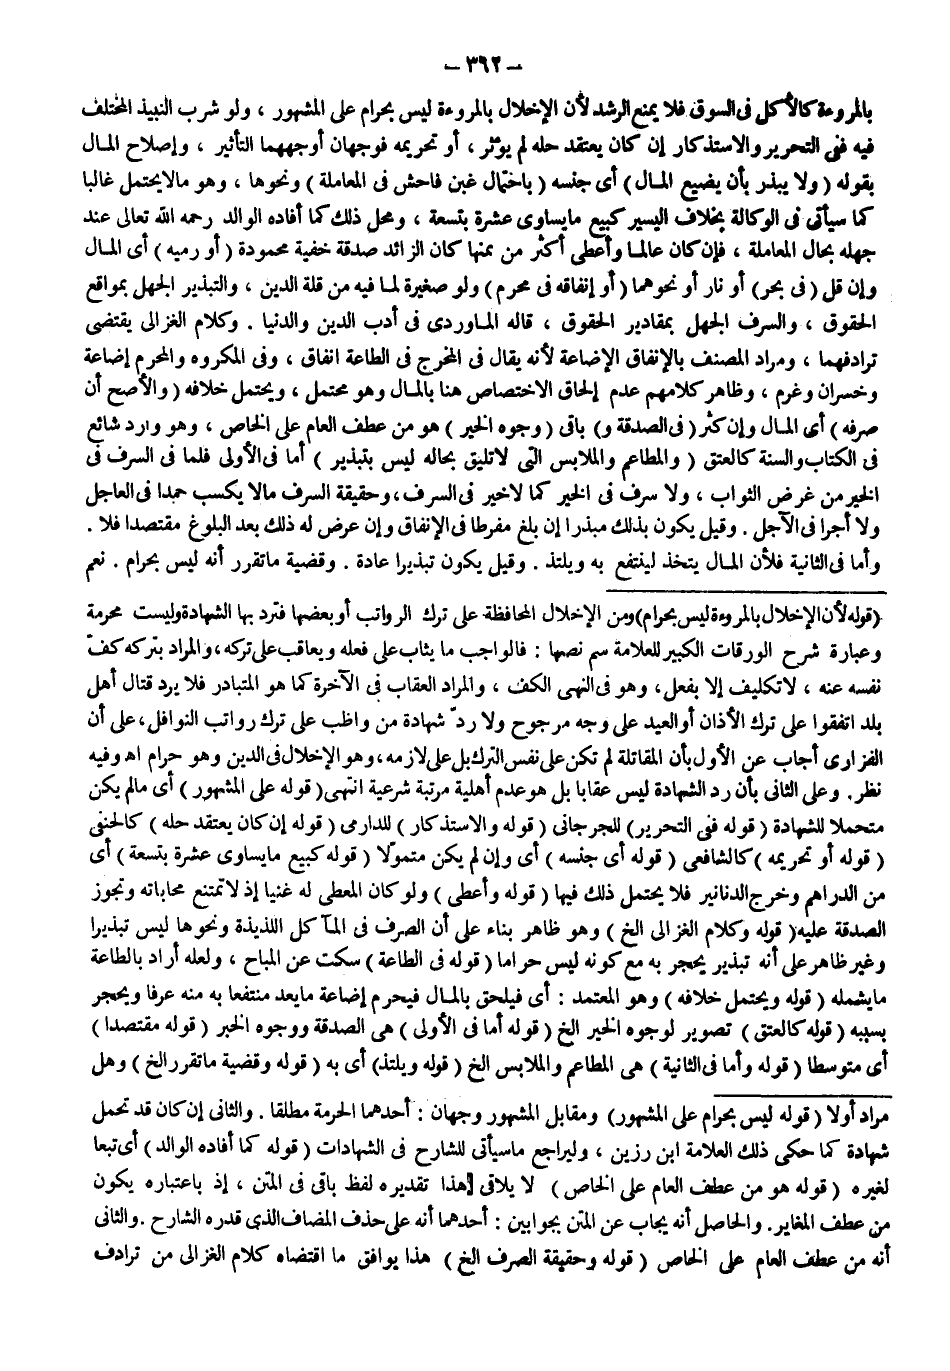 – ٣٦٢ –
بالمروءة كالأكل فى السوق فلا يمنع الرشد لأن الإخلال بالمروءة ليس بحرام على المشهور ، ولو شرب النبيذ المختلف
فيه فنى التحرير والاستذكار إن كان يعتقد حله لم يؤثر ، أو تحريمه فوجهان أوجههما التأثير ، وإصلاح المال
بقوله ( ولا يبذر بأن يضيع المال ) أى جنسه ( باحتمال غبن فاحش فى المعاملة ) ونحوها ، وهو مالا يحتمل غالبا
كما سيأتى فى الوكالة بخلاف اليسير كبيع مايساوى عشرة بتسعة ، ومحل ذلك كما أفاده الوالد رحمه الله تعالى عند
جهله بحال المعاملة ، فإن كان عالما وأعطى أكثر من ثمنها كان الزائد صدقة خفية محمودة ( أو رميه ) أى المال
وإن قل ( فى بحر ) أو نار أو نحوهما ( أو إنفاقه فى محرم ) ولو صغيرة لما فيه من قلة الدين ، والتبذير الجهل بمواقع
الحقوق ، والسرف الجهل بمقادير الحقوق ، قاله الماوردى فى أدب الدين والدنيا . وكلام الغزالى يقتضى
ترادفهما ، ومراد المصنف بالإنفاق الإضاعة لأنه يقال فى المخرج فى الطاعة انفاق ، وفى المكروه والمحرم إضاعة
وخسران وغرم ، وظاهر كلامهم عدم إلحاق الاختصاص هنا بالمال وهو محتمل ، ويحتمل خلافه ( والأصح أن
صرفه ) أى المال وإن كثر ( فى الصدقة و ) باقى ( وجوه الخير ) هو من عطف العام على الخاص ، وهو وارد شائع
فى الكتاب والسنة كالعتق ( والمطاعم والملابس التى لاتليق بحاله ليس بتبذير ) أما فى الأولى فلما فى السرف فى
الخير من غرض الثواب ، ولا سرف فى الخير كما لاخير فى السرف ، وحقيقة السرف مالا يكسب حمدا فى العاجل
ولا أجرا فى الآجل . وقيل يكون بذلك مبذرا إن بلغ مفرطا فى الإنفاق وإن عرض له ذلك بعد البلوغ مقتصدا فلا .
وأما فى الثانية فلأن المال يتخذ لينتفع به ويلتذ . وقيل يكون تبذيرا عادة . وقضية ماتقرر أنه ليس بحرام . نعم
( قوله لأن الإخلال بالمروءة ليس بحرام ) ومن الإخلال المحافظة على ترك الرواتب أو بعضها فترد بها الشهادة وليست محرمة
وعبارة شرح الورقات الكبير للعلامة سم نصها : فالواجب ما يثاب على فعله ويعاقب على تركه ، والمراد بتركه كفّ
نفسه عنه ، لاتكليف إلا بفعل ، وهو فى النهى الكف ، والمراد العقاب فى الآخرة كما هو المتبادر فلا يرد قتال أهل
بلد اتفقوا على ترك الأذان أو العيد على وجه مرجوح ولا ردّ شهادة من واظب على ترك رواتب النوافل ، على أن
الفزارى أجاب عن الأول بأن المقاتلة لم تكن على نفس الترك بل على لازمه ، وهو الإخلال فى الدين وهو حرام اه وفيه
نظر . وعلى الثانى بأن رد الشهادة ليس عقابا بل هو عدم أهلية مرتبة شرعية انتهى ( قوله على المشهور ) أى مالم يكن
متحملا للشهادة ( قوله فنى التحرير ) للجرجانى ( قوله والاستذكار ) للدارمى ( قوله إن كان يعتقد حله ) كالحنفى
( قوله أو تحريمه ) كالشافعى ( قوله أى جنسه ) أى وإن لم يكن متمولا ( قوله كبيع مايساوى عشرة بتسعة ) أى
من الدراهم وخرج الدنانير فلا يحتمل ذلك فيها ( قوله وأعطى ) ولو كان المعطى له غنيا إذ لاتمتنع محاباته وتجوز
الصدقة عليه ( قوله وكلام الغزالى الخ ) وهو ظاهر بناء على أن الصرف فى المآكل اللذيذة ونحوها ليس تبذيرا
وغير ظاهر على أنه تبذير يحجر به مع كونه ليس حراما ( قوله فى الطاعة ) سكت عن المباح ، ولعله أراد بالطاعة
مايشمله ( قوله ويحتمل خلافه ) وهو المعتمد : أى فيلحق بالمال فيحرم إضاعة مايعد منتفعا به منه عرفا ويحجر
بسببه ( قوله كالعتق ) تصوير لوجوه الخير الخ ( قوله أما فى الأولى ) هى الصدقة ووجوه الخير ( قوله مقتصدا )
أى متوسطا ( قوله وأما فى الثانية ) هى المطاعم والملابس الخ ( قوله ويلتذ ) أى به ( قوله وقضية ماتقرر الخ ) وهل
مراد أولا ( قوله ليس بحرام على المشهور ) ومقابل المشهور وجهان : أحدهما الحرمة مطلقا . والثانى إن كان قد تحمل
شهادة كما حكى ذلك العلامة ابن رزين ، وليراجع ماسيأتى للشارح فى الشهادات ( قوله كما أفاده الوالد ) أى تبعا
لغيره ( قوله هو من عطف العام على الخاص ) لا يلاقى هذا تقديره لفظ باقى فى المتن ، إذ باعتباره يكون
من عطف المغاير . والحاصل أنه يجاب عن المتن بجوابين : أحدهما أنه على حذف المضاف الذى قدره الشارح . والثانى
أنه من عطف العام على الخاص ( قوله وحقيقة الصرف الخ ) هذا يوافق ما اقتضاه كلام الغزالى من ترادف